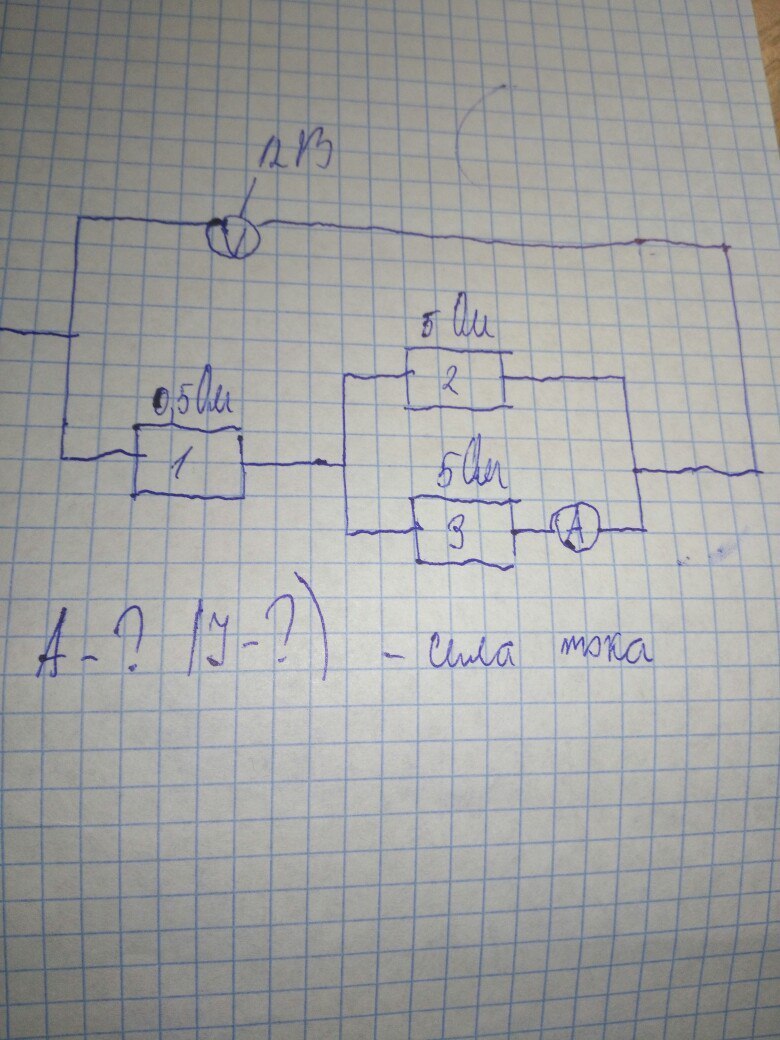 12 В
V
5 Ом
2
0,5 Ом
1
5 Ом
3
A
A - ? (I - ?) - сила тока